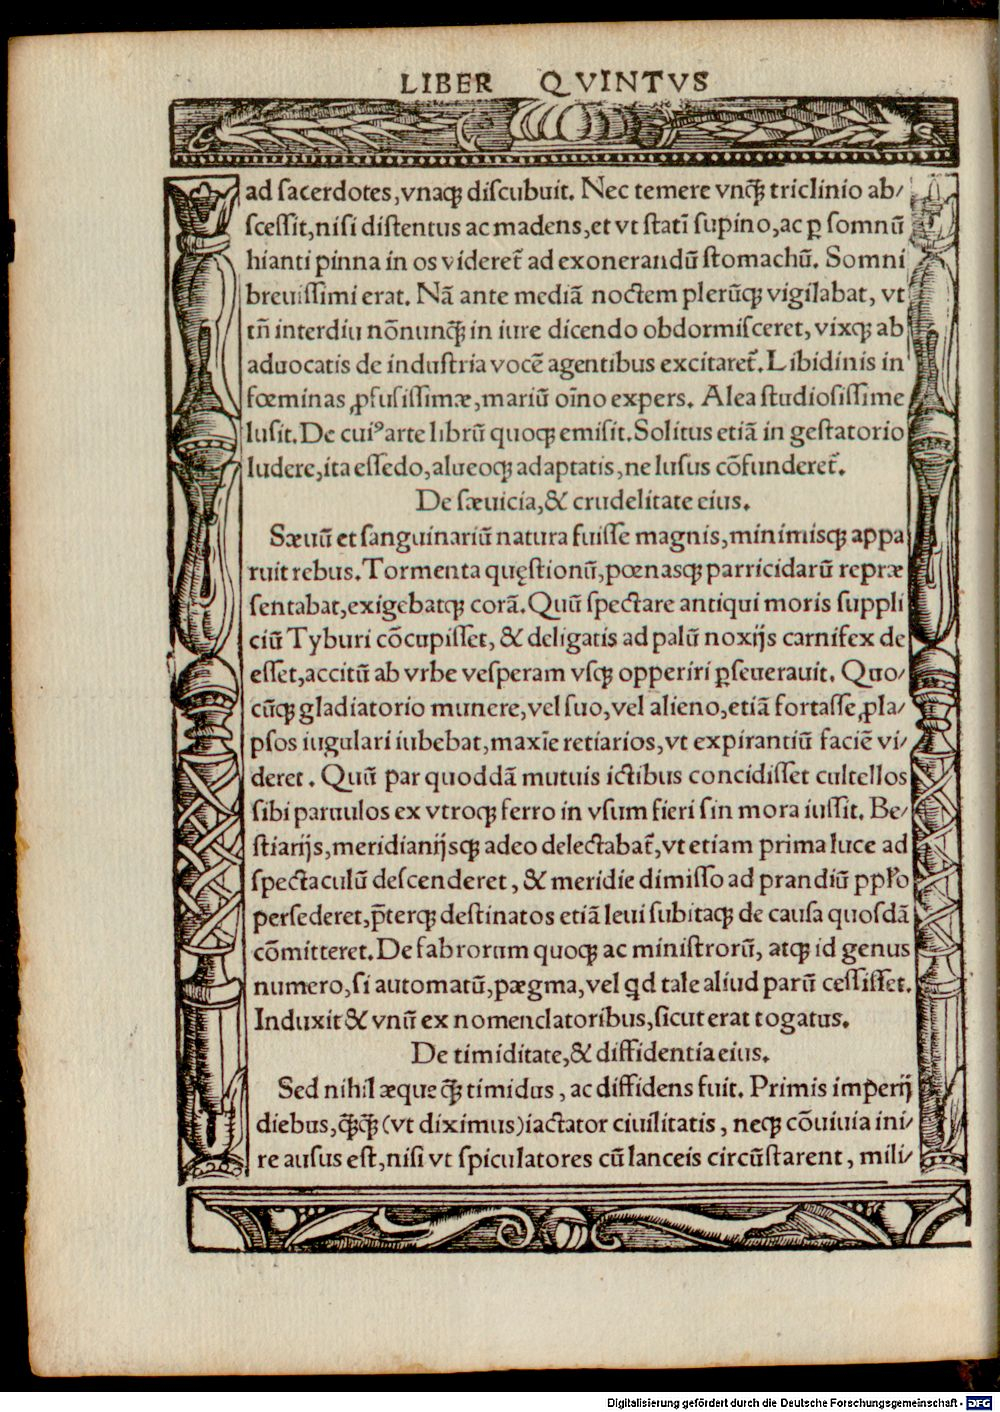 LIBER QVINTVS
ad ſacerdotes,vnaqꝫ diſcubuit. Nec temere vnq̃ꝫ triclinio ab/
ſceſſit,niſi diſtentus ac madens,et vt ſtatĩ ſupino,ac ꝑ ſomnũ
hianti pinna in os videret̃ ad exonerandũ ſtomachũ. Somni
breuiſſimi erat. Nã ante mediã noctem plerũqꝫ vigilabat, vt
tñ interdiu nõnunq̃ꝫ in iure dicendo obdormiſceret, vixqꝫ ab
aduocatis de induſtria vocẽ agentibus excitaret̃. Libidinis in
fœminas ꝓfuſiſſimæ,mariũ oĩno expers. Alea ſtudioſiſſime
luſit.De cuiꝰ arte librũ quoqꝫ emiſit.Solitus etiã in geſtatorio
ludere,ita eſſedo,alueoqꝫ adaptatis,ne luſus cõfunderet̃.
De ſæuicia,& crudelitate eius.
Sæuũ et ſanguinariũ natura fuiſſe magnis,minimisqꝫ appa
ruit rebus.Tormenta quęſtionũ,pœnasqꝫ parricidarũ repræ
ſentabat,exigebatqꝫ corã.Quũ ſpectare antiqui moris ſuppli
ciũ Tyburi cõcupiſſet, & deligatis ad palũ noxijs carnifex de
eſſet,accitũ ab vrbe veſperam vſqꝫ opperiri ꝑſeuerauit. Quo/
cũqꝫ gladiatorio munere,vel ſuo,vel alieno,etiã fortaſſe ꝓla/
pſos iugulari iubebat,maxĩe retiarios,vt expirantiũ faciẽ vi/
deret. Quũ par quoddã mutuis ictibus concidiſſet cultellos
ſibi paruulos ex vtroqꝫ ferro in vſum fieri ſin mora iuſſit. Be/
ſtiarijs,meridianijſqꝫ adeo delectabat̃,vt etiam prima luce ad
ſpectaculũ deſcenderet, & meridie dimiſſo ad prandiũ ppl̃o
perſederet,p̃terqꝫ deſtinatos etiã leui ſubitaqꝫ de cauſa quoſdã
cõmitteret.De fabrorum quoqꝫ ac miniſtrorũ, atqꝫ id genus
numero,ſi automatũ,pægma,vel qd tale aliud parũ ceſſiſſet.
Induxit & vnũ ex nomenclatoribus,ſicut erat togatus.
De timiditate,& diffidentia eius.
Sed nihil æque q̃ꝫ timidus, ac diffidens fuit. Primis imperij
diebus,q̃ꝫq̃ꝫ (vt diximus) iactator ciuilitatis, neqꝫ cõuiuia ini/
re auſus eſt,niſi vt ſpiculatores cũ lanceis circũſtarent, mili/
Digitalisierung gefördert durch die Deutsche Forschungsgemeinschaft - DFG